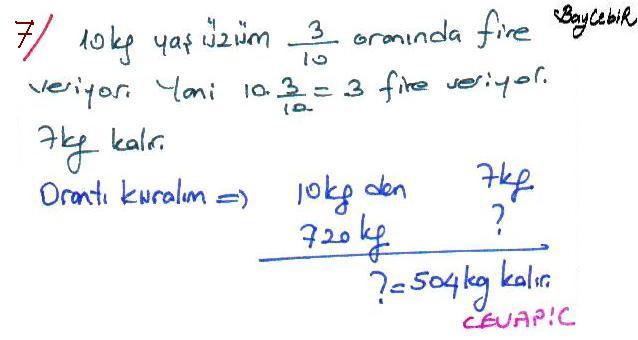 BayCebiR
7/ 10kg yaş üzüm 3/10 oranında fire
veriyor. Yani 10.3/10 = 3 fire veriyor.
7kg kalır.
Orantı kuralım => 10kg dan 7kg
720kg ?
?=504kg kalır.
CEVAP:C